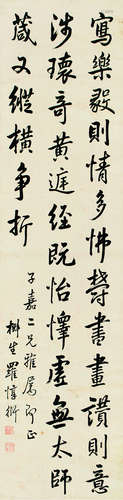 寫樂毅則情多怫鬱書畫讚則意
涉瓌奇黃庭經既怡懌虛無太師
葴又縱橫爭折
子嘉二兄雅屬即正
椒生羅惇衍